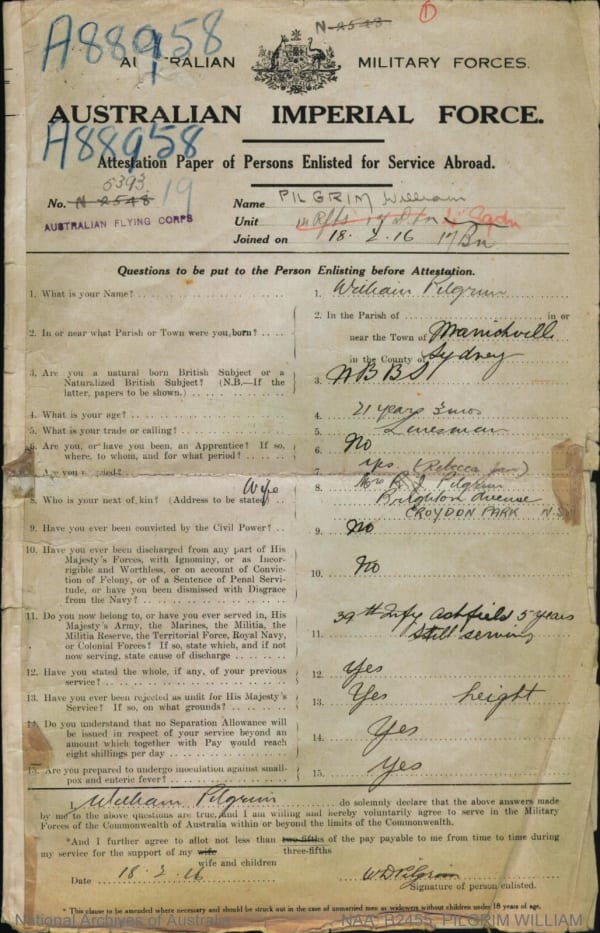 N 2548
1
A88958
AUSTRALIAN MILITARY FORCES.
AUSTRALIAN IMPERIAL FORCE.
A88958
Attestation Paper of Persons Enlisted for Service Abroad.
5393
No. N 2548 19
Name PILGRIM William
AUSTRALIAN FLYING CORPS
Unit
Joined on 18. 2. 16 17 Bn
Questions to be put to the Person Enlisting before Attestation.
1. What is your Name?
1. William Pilgrim
2. In or near what Parish or Town were you born?
2. In the Parish of in or
near the Town of Marrickville
in the County of Sydney
3. Are you a natural born British Subject or a
Naturalized British Subject? (N.B.—If the
latter, papers to be shown.)
3. NBBS
4. What is your age?
4. 21 years 3 mos
5. What is your trade or calling?
5. Linesman
6. Are you, or have you been, an Apprentice? If so,
where, to whom, and for what period?
6. No
7. Are you married?
7. Yes (Rebecca Jane)
8. Who is your next of kin? (Address to be stated) Wife
8. Mrs R J Pilgrim
Brighton Avenue
CROYDON PARK N.S.
9. Have you ever been convicted by the Civil Power?
9. No
10. Have you ever been discharged from any part of His
Majesty's Forces, with Ignominy, or as Incor-
rigible and Worthless, or on account of Convic-
tion of Felony, or of a Sentence of Penal Servi-
tude, or have you been dismissed with Disgrace
from the Navy?
10. No
11. Do you now belong to, or have you ever served in, His
Majesty's Army, the Marines, the Militia, the
Militia Reserve, the Territorial Force, Royal Navy,
or Colonial Forces? If so, state which, and if not
now serving, state cause of discharge
11. 39th Infy Ashfield 5 years
Still serving
12. Have you stated the whole, if any, of your previous
service?
12. Yes
13. Have you ever been rejected as unfit for His Majesty's
Service? If so, on what grounds?
13. Yes height
14. Do you understand that no Separation Allowance will
be issued in respect of your service beyond an
amount which together with Pay would reach
eight shillings per day
14. Yes
15. Are you prepared to undergo inoculation against small-
pox and enteric fever?
15. Yes
I, William Pilgrim do solemnly declare that the above answers made
by me to the above questions are true, and I am willing and hereby voluntarily agree to serve in the Military
Forces of the Commonwealth of Australia within or beyond the limits of the Commonwealth.
*And I further agree to allot not less than two-fifths of the pay payable to me from time to time during
three-fifths
my service for the support of my wife
wife and children
Date 18. 2. 16
W D Pilgrim
Signature of person enlisted.
* This clause to be amended where necessary and should be struck out in the case of unmarried men or widowers without children under 18 years of age.
National Archives of Australia NAA: B2455, PILGRIM WILLIAM